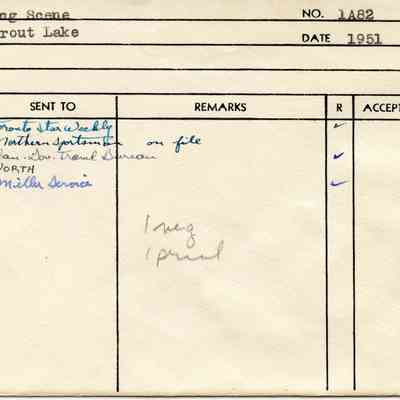 ng Scene NO. 1A82
rout Lake DATE 1951
SENT TO REMARKS R ACCEPT
oronto Star Weekly ✓
Northern Sportsman on file
an. Gov. Travel Bureau ✓
WORTH
Miller Service ✓
1 neg
1 print